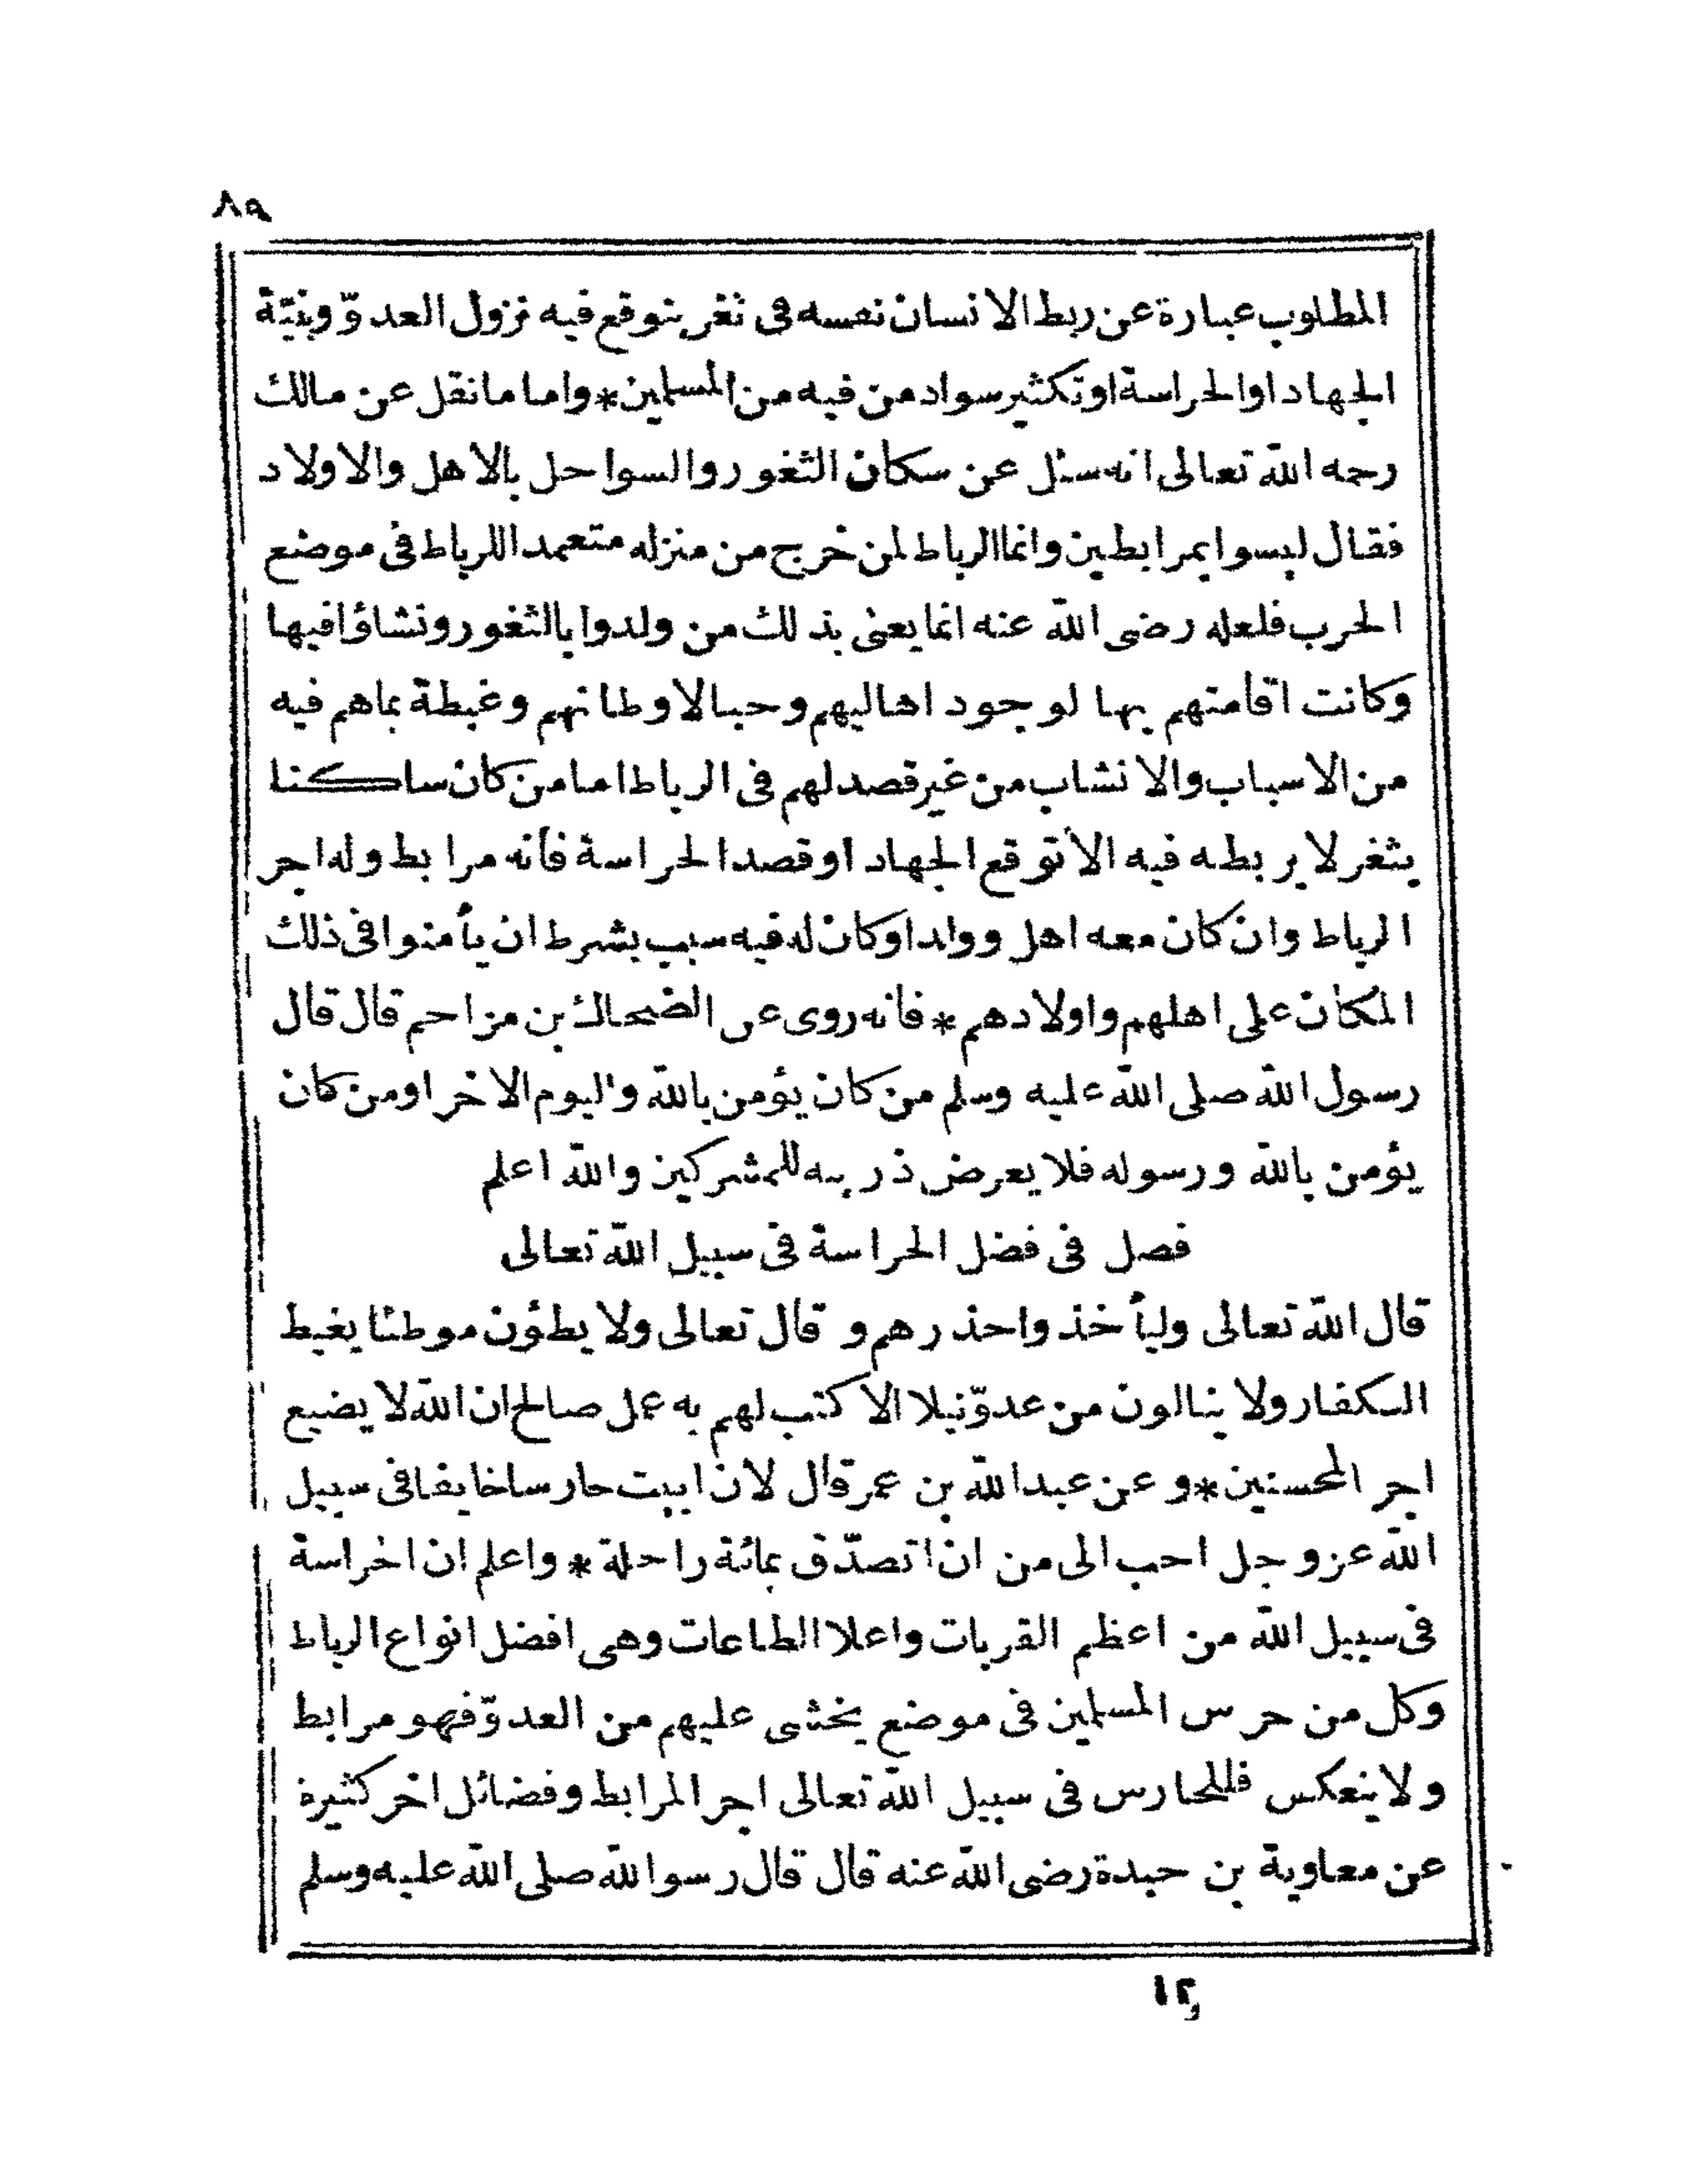 ٨٩
المطلوب عبارة عن ربط الانسان نفسه فى ثغر يتوقع فيه نزول العدوّ وبنيّة
الجهاد او الحراسة او تكثير سواد من فيه من المسلمين * واما ما نقل عن مالك
رحمه الله تعالى انه سئل عن سكان الثغور والسواحل بالاهل والاولاد
فقال ليسوا بمرابطين وانما الرباط لمن خرج من منزله متعمدا للرباط فى موضع
الحرب فلعله رضى الله عنه انما يعنى بذلك من ولدوا بالثغور ونشاؤا فيها
وكانت اقامتهم بها لوجود اهاليهم وحبا لاوطانهم وغبطة بماهم فيه
من الاسباب والانشاب من غير قصد لهم فى الرباط اما من كان ساكنا
بثغر لا يربطه فيه الا توقع الجهاد او قصد الحراسة فأنه مرابط وله اجر
الرباط وان كان معه اهل وولد او كان له فيه سبب بشرط ان يأمنوا فى ذلك
المكان على اهلهم واولادهم * فانه روى عن الضحاك بن مزاحم قال قال
رسول الله صلى الله عليه وسلم من كان يؤمن بالله واليوم الاخر او من كان
يؤمن بالله ورسوله فلا يعرض ذريه للمشركين والله اعلم
فصل فى فضل الحراسة فى سبيل الله تعالى
قال الله تعالى وليأخذوا حذرهم و قال تعالى ولا يطئون موطئا يغيط
الكفار ولا ينالون من عدوّ نيلا الا كتب لهم به عمل صالح ان الله لا يضيع
اجر المحسنين * و عن عبد الله بن عمر قال لان ابيت حارسا خايفا فى سبيل
الله عز وجل احب الى من ان اتصدّق بمائة راحلة * واعلم ان الحراسة
فى سبيل الله من اعظم القربات واعلا الطاعات وهى افضل انواع الرباط
وكل من حرس المسلمين فى موضع يخشى عليهم من العدوّ فهو مرابط
ولا ينعكس فللحارس فى سبيل الله تعالى اجر المرابط وفضائل اخر كثيرة
عن معاوية بن حيدة رضى الله عنه قال قال رسوا لله صلى الله عليه وسلم
١٢